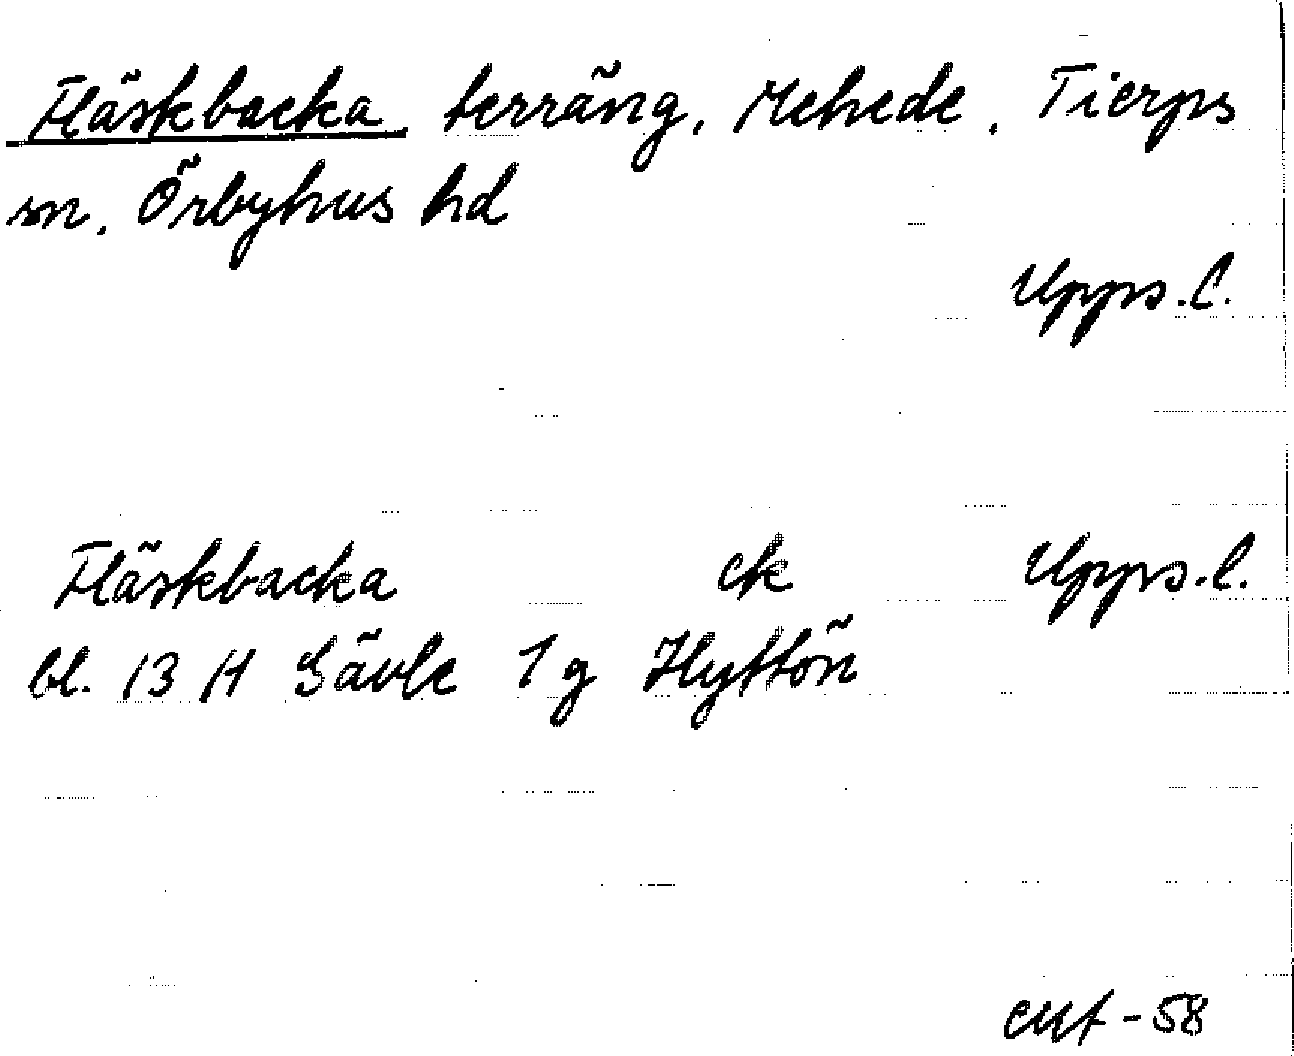 Fläskbacka, terräng, Mehede, Tierps
sn, Örbyhus hd
Upps. l.
Fläskbacka ek Upps. l.
bl. 13 H Gävle 1 g Hyttön
-58